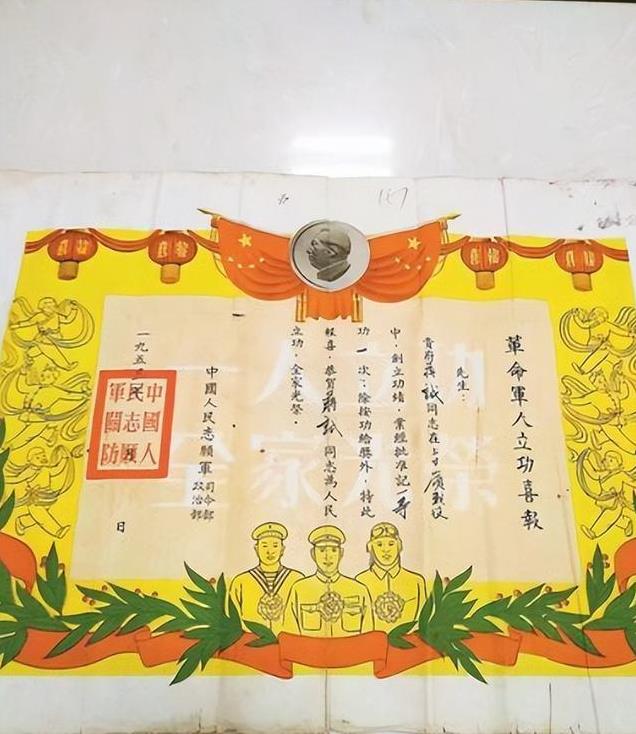 革命軍人立功喜報
先生：
貴府蔣誠同志在上甘嶺戰役
中，創立功績，業經批准記一等
功一次；除按功給獎外，特此
報喜，恭賀蔣誠同志為人民
立功，全家光榮。
中國人民志願軍司令部
政治部
一九五
日
中國人
民志願
軍關防
一人立功
全家光榮